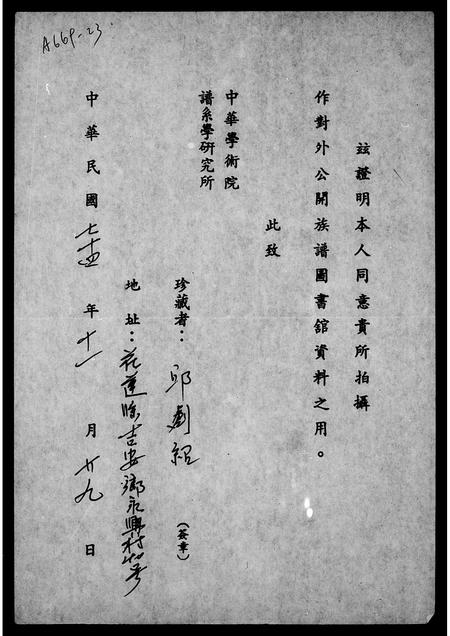 A669-23
茲證明本人同意貴所拍攝
作對外公開族譜圖書館資料之用。
此致
中華學術院
譜系學研究所
珍藏者：邱 紹 (簽章)
地址：花蓮縣吉安鄉永興村 號
中華民國七十四年十一月廿九日